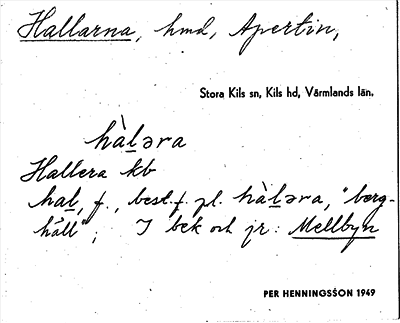 Hallarna, hmd, Apertin,
Stora Kils sn, Kils hd, Värmlands län.
hàḻəra
Hallera kb
haḻ, f., best. f. pl. hàḻəra, "berg-
häll"; I bek och jr: Mellbyn
PER HENNINGSSON 1949